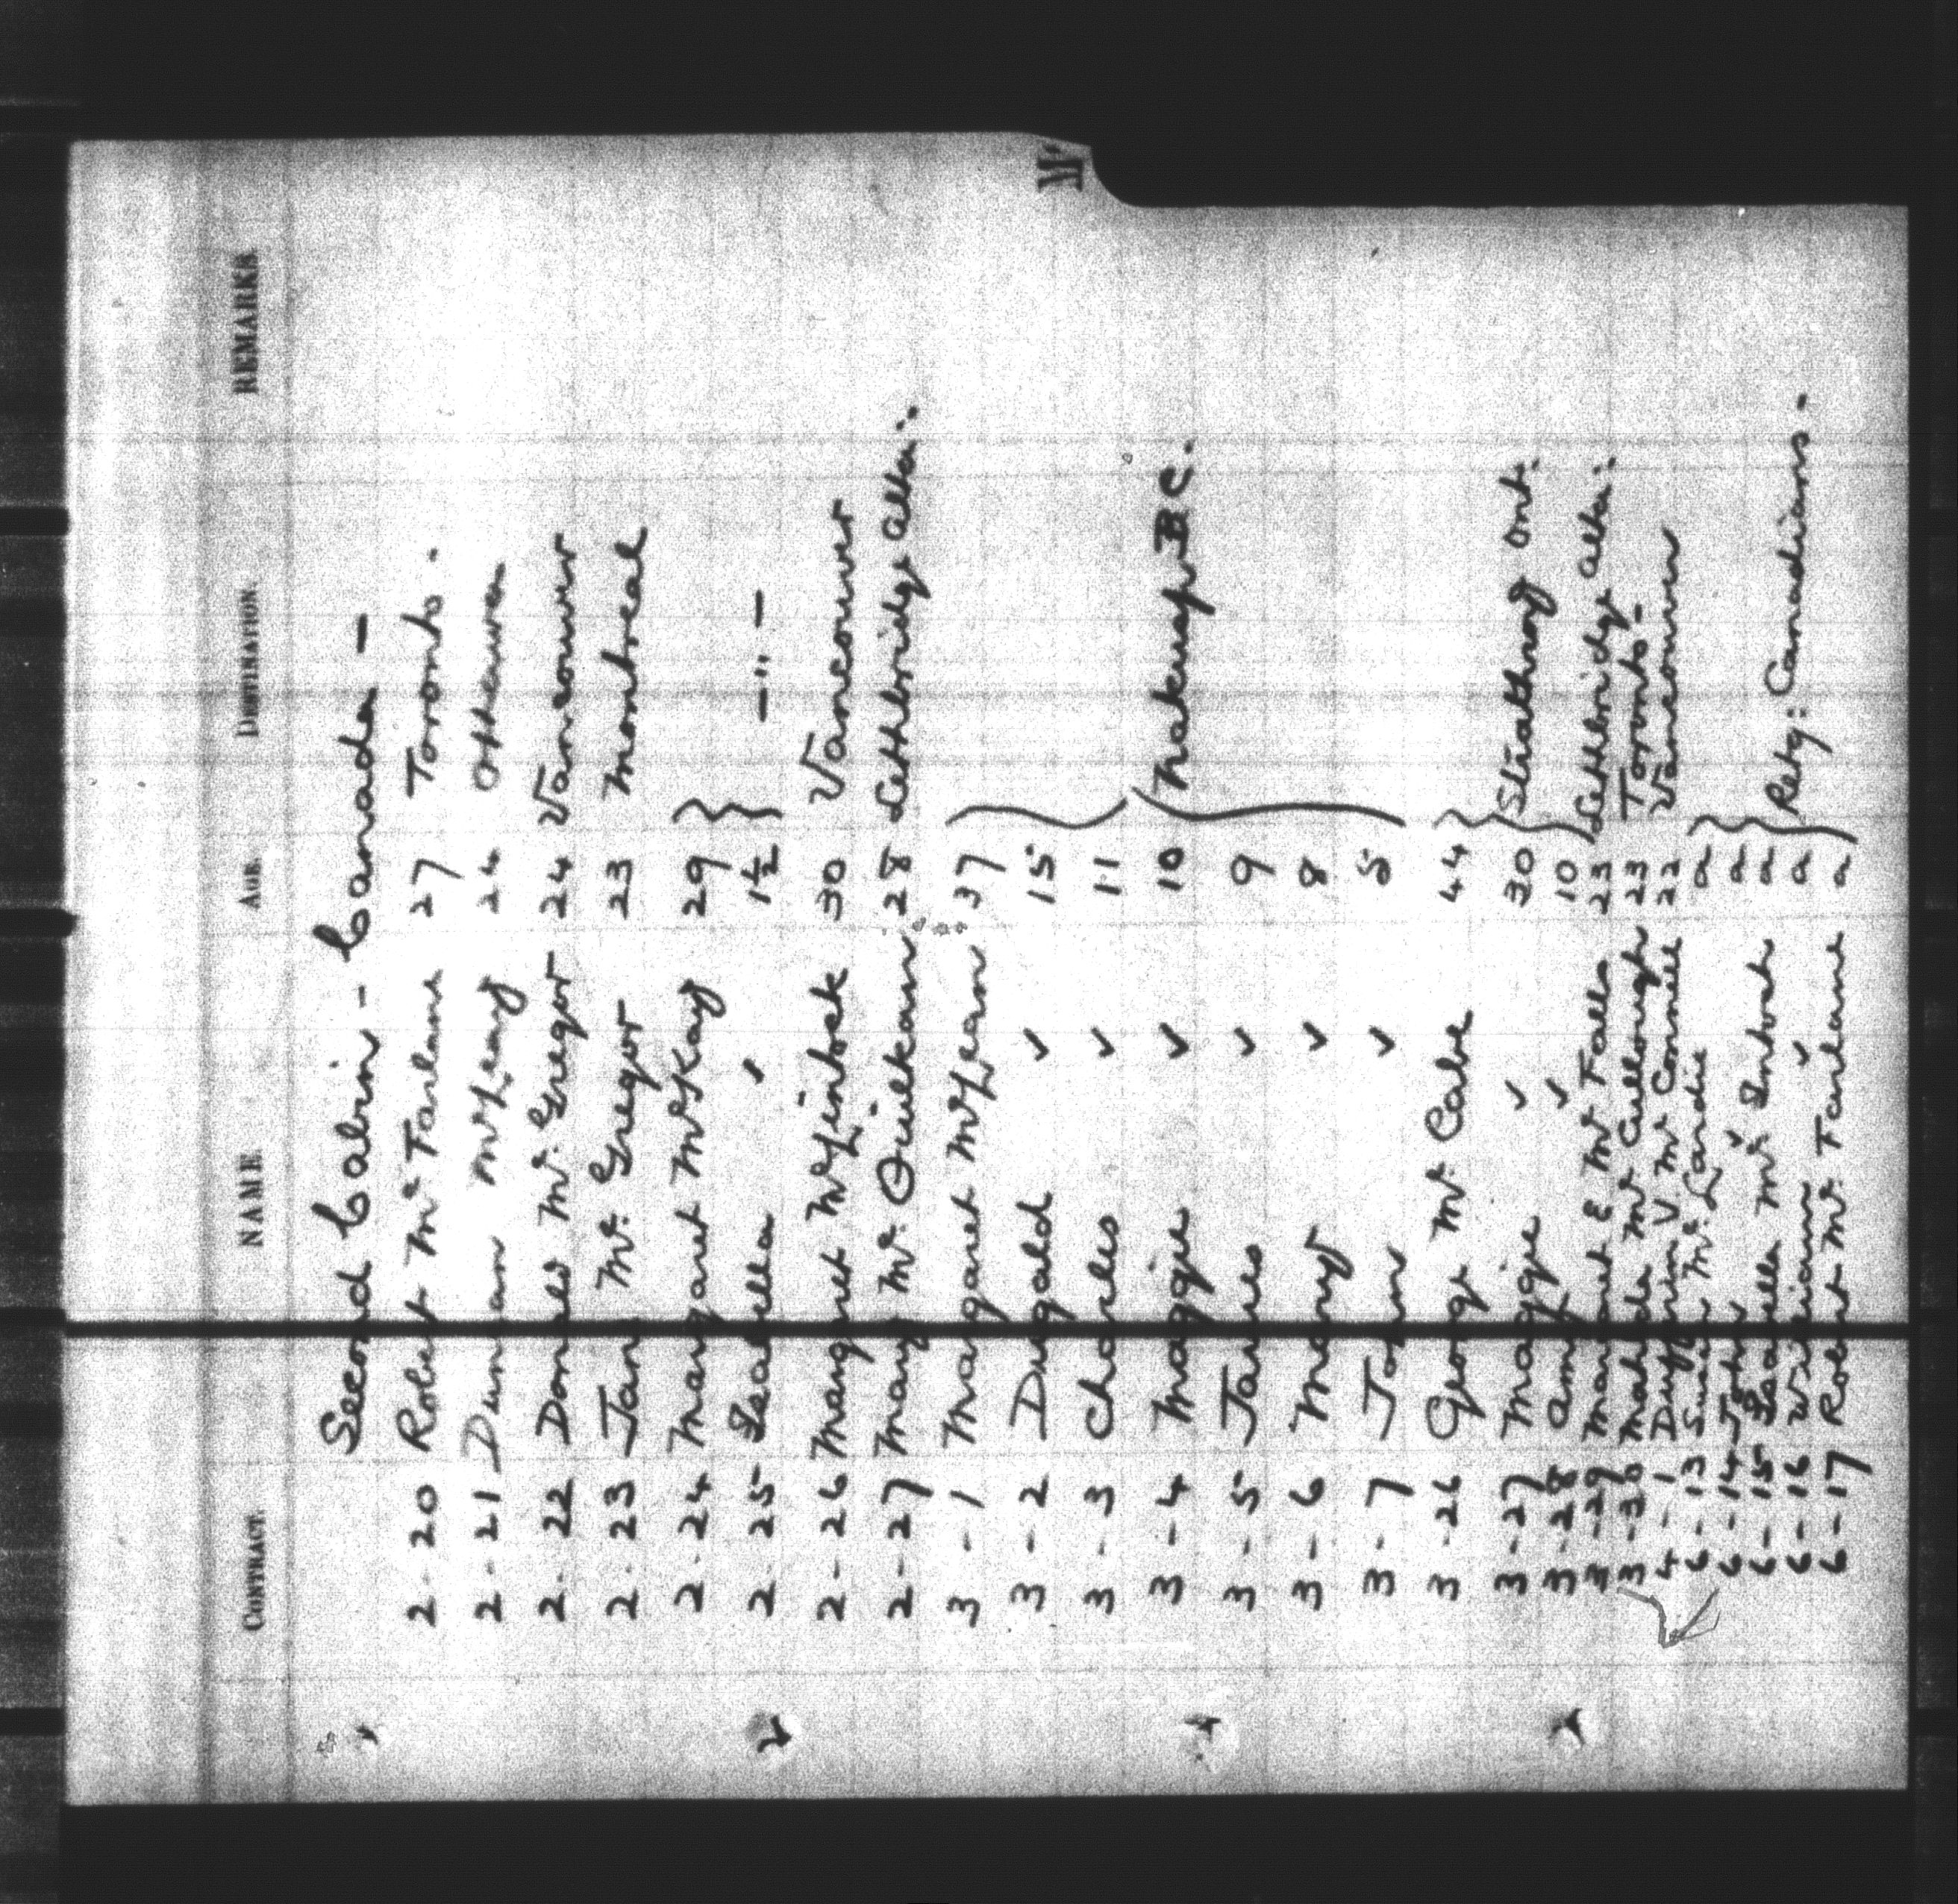 Mc
CONTRACT. NAME AGE. DESTINATION. REMARKS
Second Cabin - Canada -
2-20 Robert Mc Farlane 27 Toronto.
2-21 Duncan McLeay 24 Ottawa
2-22 Donald Mc. Gregor 24 Vancouver
2-23 Jane Mc. Gregor 23 Montreal
2-24 Margaret McKay 29 }
2-25 Isabella ✓ 1½ } -"-
2-26 Margaret McLintock 30 Vancouver
2-27 Mary Mc. Quilkan 28 Lethbridge Alta.
3-1 Margaret McLean 37
3-2 Dugald ✓ 15
3-3 Charles ✓ 11
3-4 Maggie ✓ 10 Nakusp B C.
3-5 James ✓ 9
3-6 Mary ✓ 8
3-7 John ✓ 5
3-26 George Mc. Cabe 44
3-27 Maggie ✓ 30 Strathroy Ont.
3-28 Amy ✓ 10
3-29 Margaret E Mc. Falls 23 Lethbridge Alta.
3-30 Matilda Mc Cullough 23 Toronto-
4-1 Dufferin V. Mc Connell 22 Vancouver
6-13 Mc. Lardie a
6-14 John ✓ a
6-15 Isabella Mc. Intosh a Retg: Canadians-
6-16 William ✓ a
6-17 Robert Mc. Farlane a